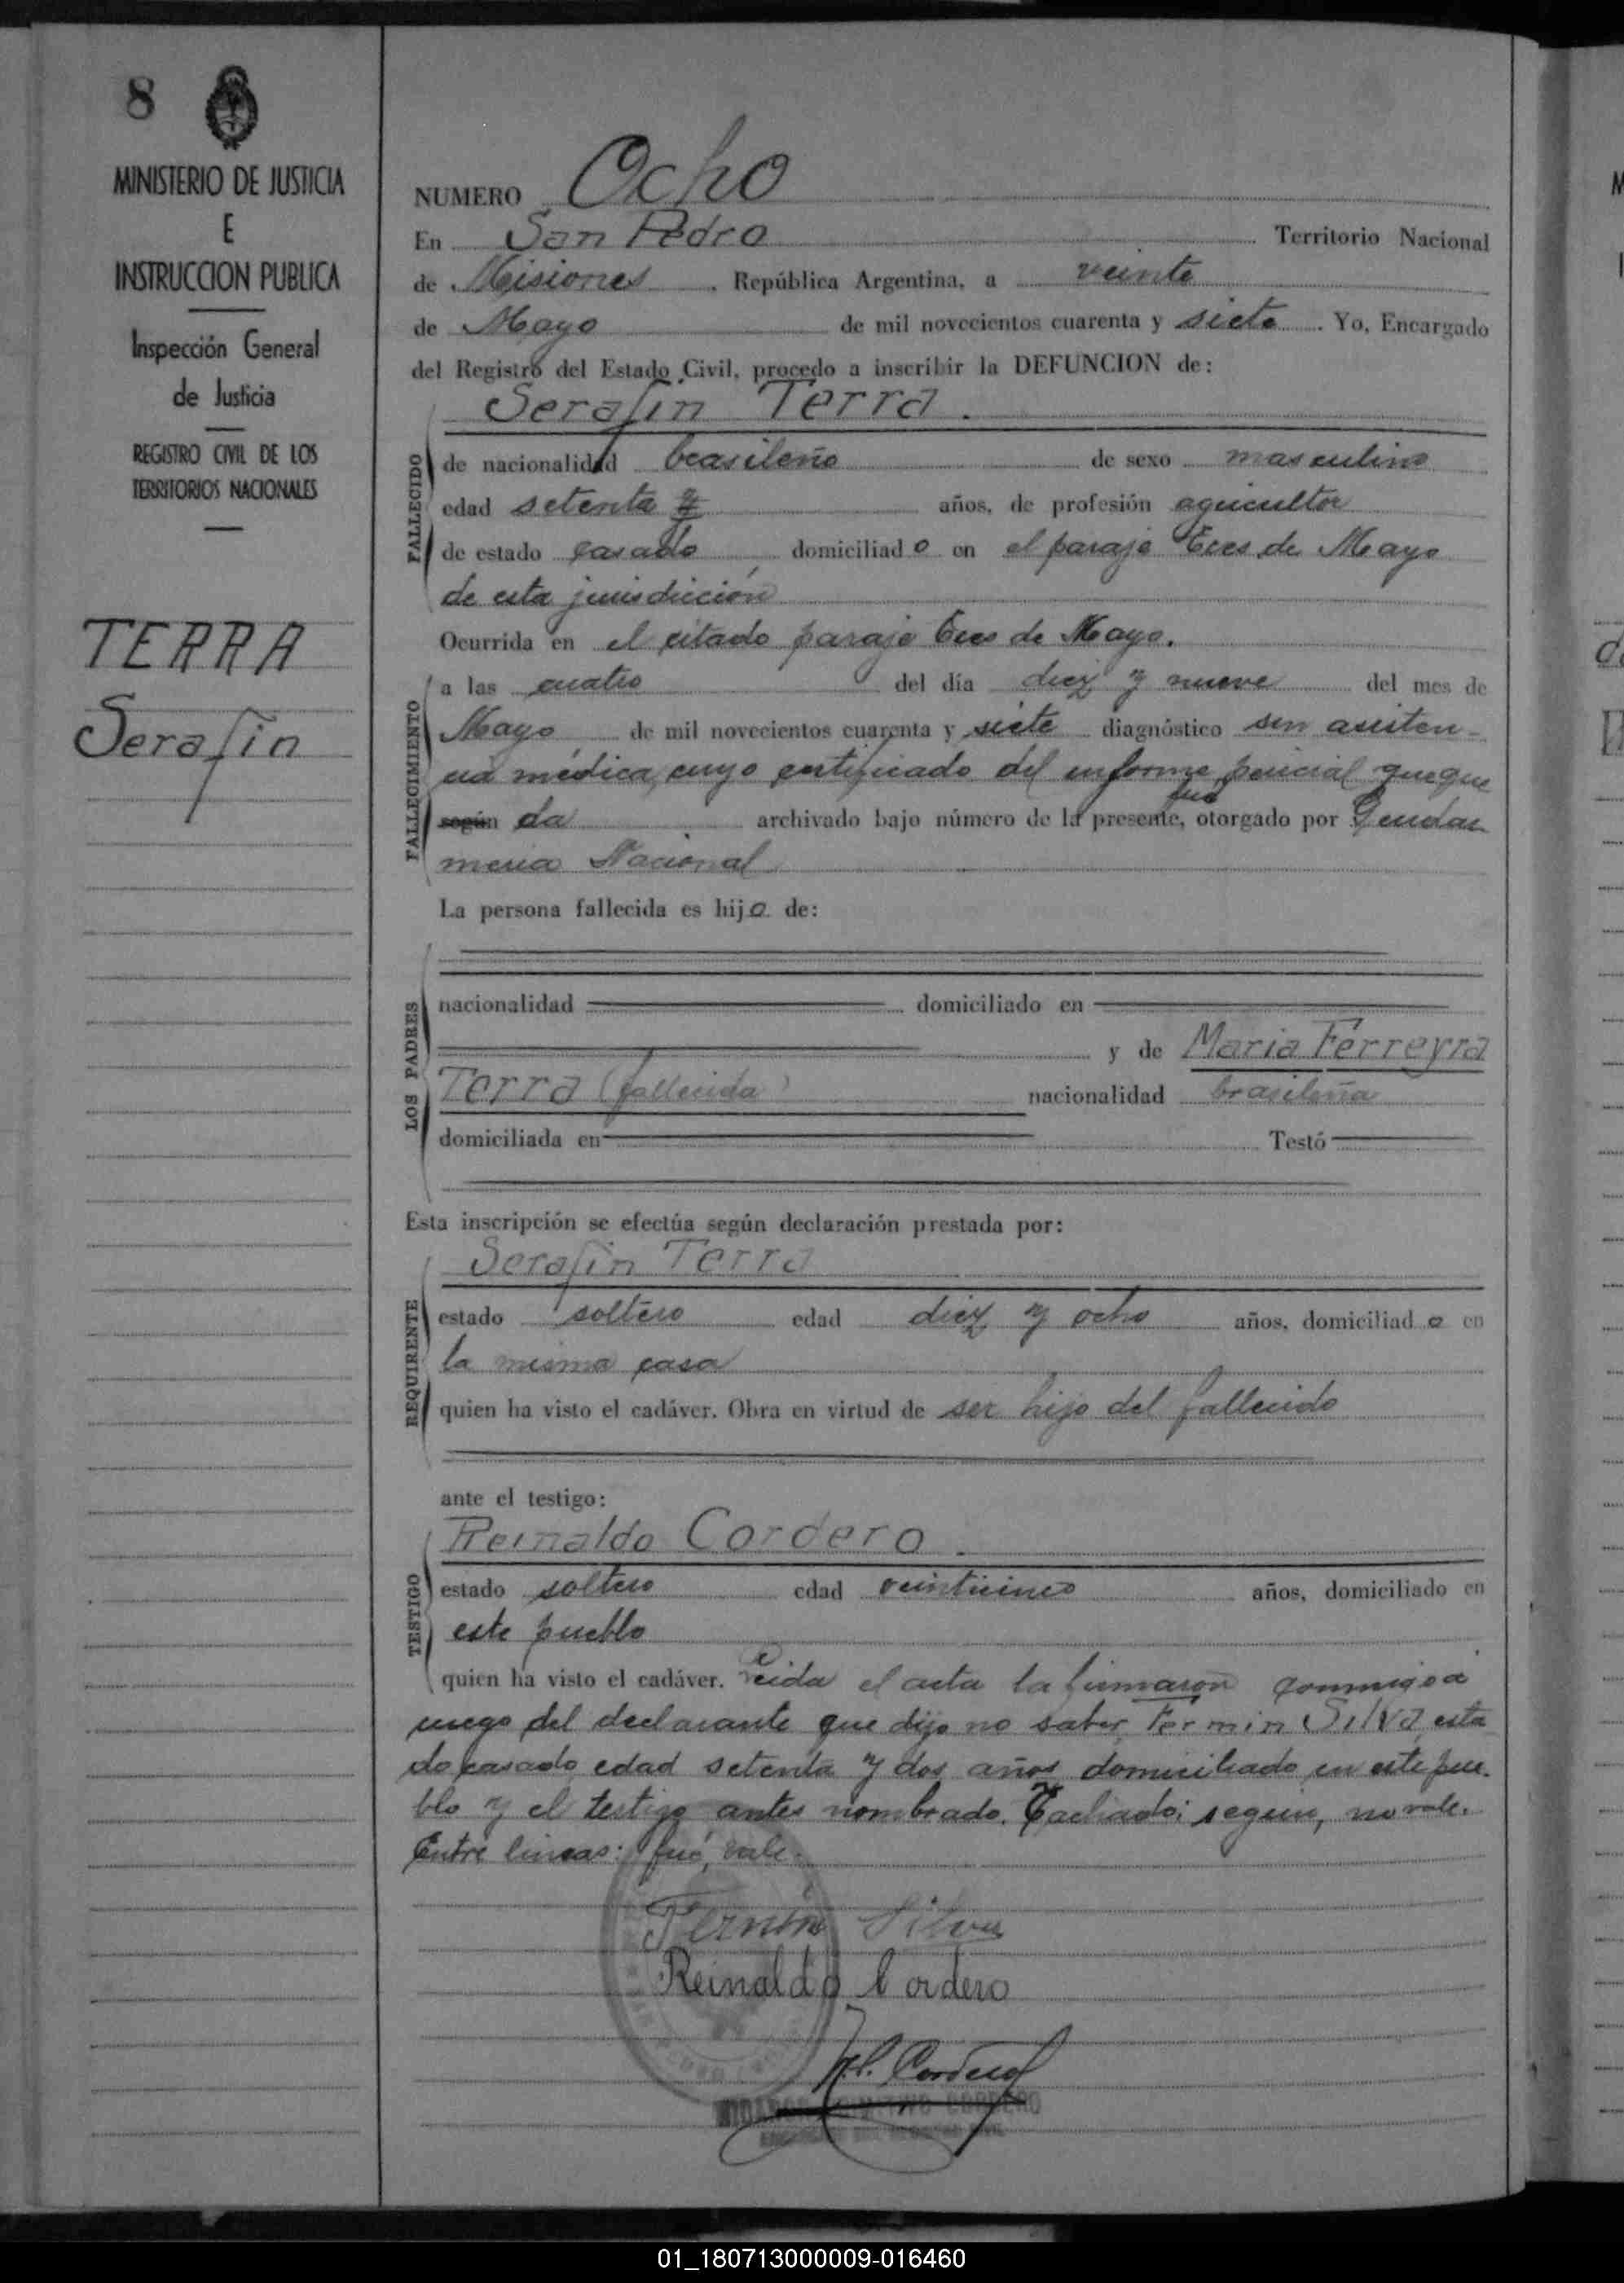 8
MINISTERIO DE JUSTICIA
E
INSTRUCCION PUBLICA
Inspección General
de Justicia
REGISTRO CIVIL DE LOS
TERRITORIOS NACIONALES
TERRA
Serafin
NUMERO Ocho
En San Pedro Territorio Nacional
de Misiones, República Argentina, a veinte
de Mayo de mil novecientos cuarenta y siete. Yo, Encargado
del Registro del Estado Civil, procedo a inscribir la DEFUNCION de:
Serafin Terra.
FALLECIDO
de nacionalidad brasileño de sexo masculino
edad setenta años, de profesión agricultor
de estado casado domiciliado en el paraje Tres de Mayo
de esta jurisdicción
Ocurrida en el citado paraje Tres de Mayo.
FALLECIMIENTO
a las cuatro del día diez y nueve del mes de
Mayo de mil novecientos cuarenta y siete diagnóstico sin asisten-
cia médica, cuyo certificado del informe pericial que que
fué
según da archivado bajo número de la presente, otorgado por Gendar
meria Nacional
La persona fallecida es hijo de:
LOS PADRES
nacionalidad domiciliado en
y de Maria Ferreyra
Terra (fallecida) nacionalidad brasileña
domiciliada en Testó
Esta inscripción se efectúa según declaración prestada por:
Serafin Terra
REQUIRENTE
estado soltero edad diez y ocho años, domiciliado en
la misma casa
quien ha visto el cadáver. Obra en virtud de ser hijo del fallecido
ante el testigo:
Reinaldo Cordero.
TESTIGO
estado soltero edad veinticinco años, domiciliado en
este pueblo
quien ha visto el cadáver. Leida el acta la firmaron conmigo a
ruego del declarante que dijo no saber, Fermin Silva, esta
do casado, edad setenta y dos años domiciliado en este pue-
blo y el testigo antes nombrado. Tachado: según, no vale.
Entre lineas: fué, vale.
Fermin Silva
Reinaldo Cordero
Cordero
CORDERO
01_180713000009-016460